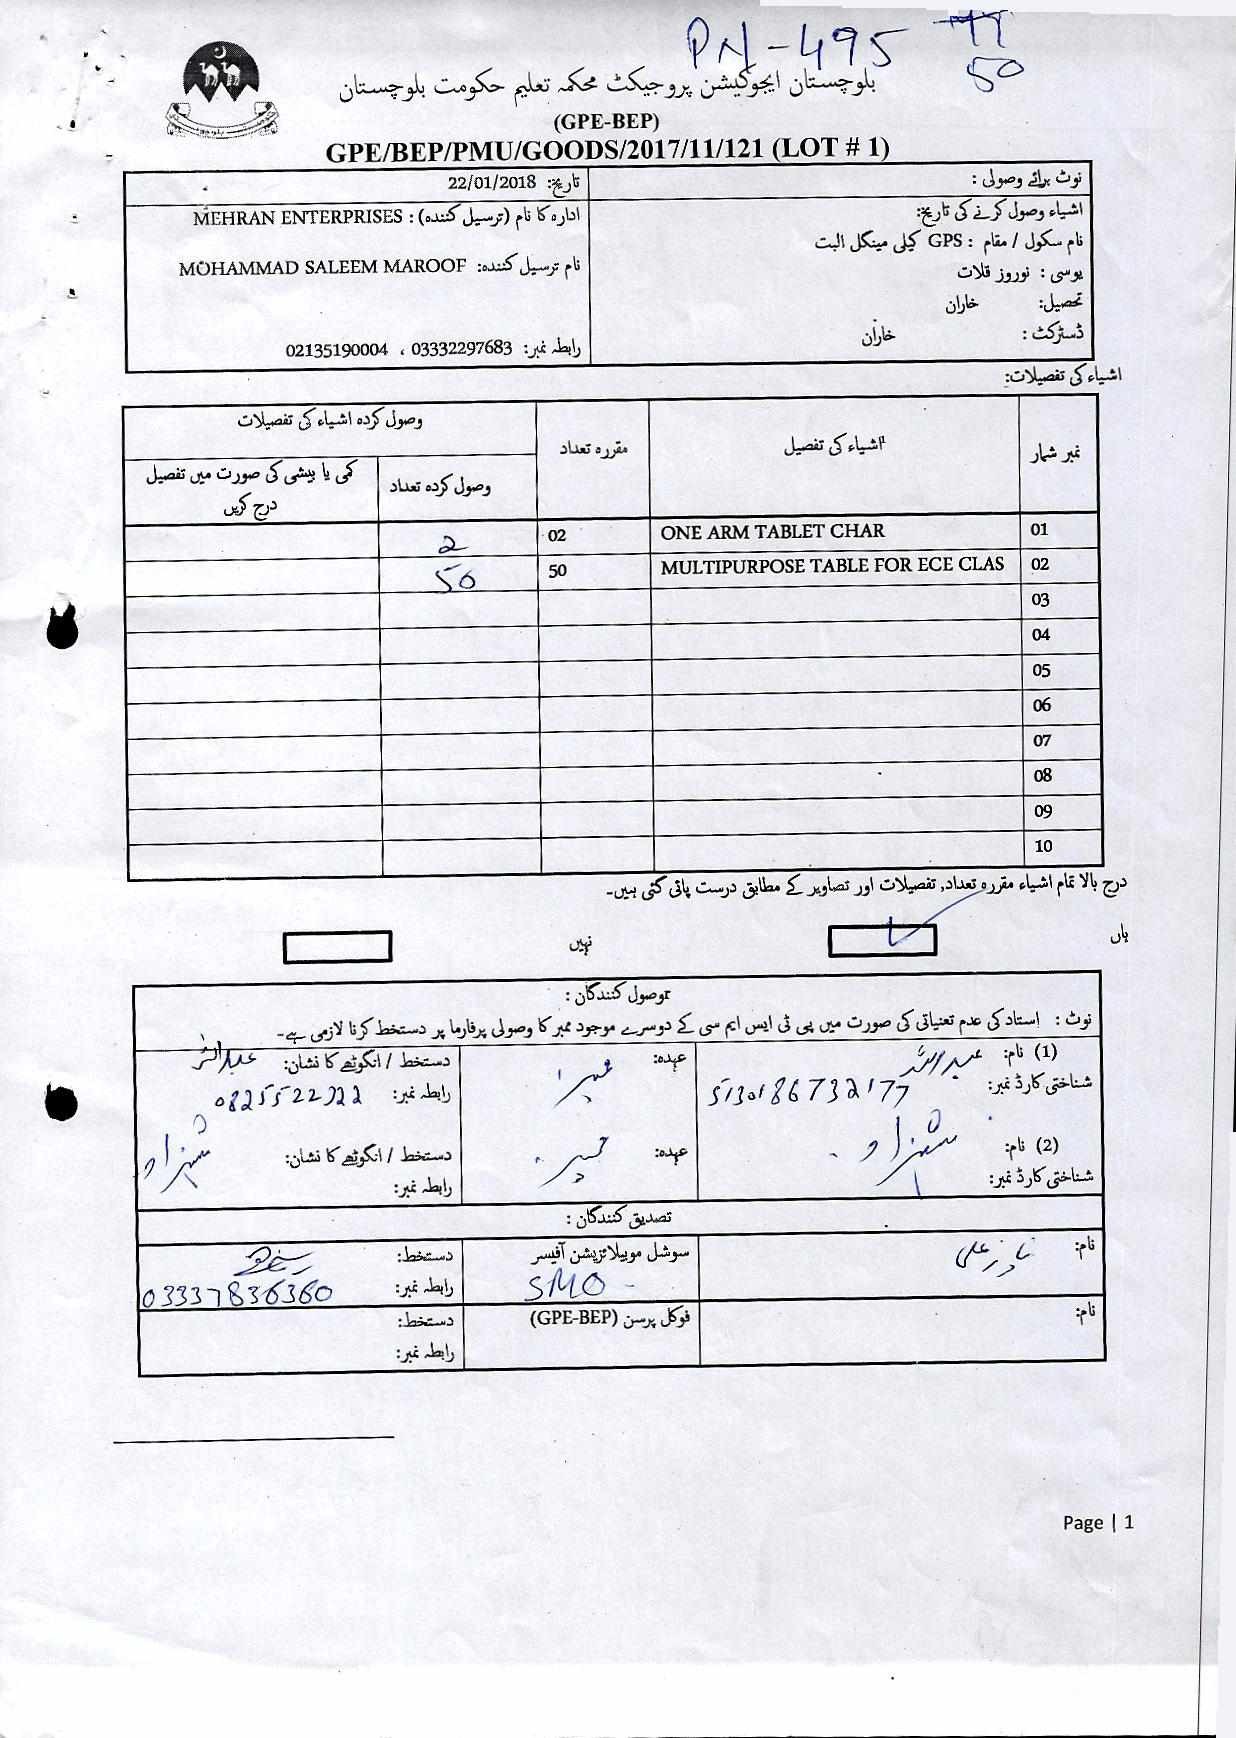 PN-495
50
بلوچستان ایجوکیشن پروجیکٹ محکمہ تعلیم حکومت بلوچستان
(GPE-BEP)
GPE/BEP/PMU/GOODS/2017/11/121 (LOT # 1)
نوٹ برائے وصولی :
تاریخ: 22/01/2018
اشیاء وصول کرنے کی تاریخ:
ادارہ کا نام (ترسیل کنندہ) : MEHRAN ENTERPRISES
نام سکول / مقام : GPS کیلی مینگل البت
نام ترسیل کنندہ: MOHAMMAD SALEEM MAROOF
یوسی : نوروز قلات
تحصیل: خاران
ڈسٹرکٹ : خاران
رابطہ نمبر: 03332297683 ، 02135190004
اشیاء کی تفصیلات:
نمبر شمار اشیاء کی تفصیل مقررہ تعداد وصول کردہ اشیاء کی تفصیلات
وصول کردہ تعداد کمی یا بیشی کی صورت میں تفصیل درج کریں
01 ONE ARM TABLET CHAR 02 2
02 MULTIPURPOSE TABLE FOR ECE CLAS 50 50
03
04
05
06
07
08
09
10
درج بالا تمام اشیاء مقررہ تعداد, تفصیلات اور تصاویر کے مطابق درست پائی گئی ہیں۔
ہاں نہیں
وصول کنندگان :
نوٹ : استاد کی عدم تعیناتی کی صورت میں پی ٹی ایس ایم سی کے دوسرے موجود ممبر کا وصولی پرفارما پر دستخط کرنا لازمی ہے۔
(1) نام: عبداللہ عہدہ: دستخط / انگوٹھے کا نشان:
شناختی کارڈ نمبر: 5130186732177 رابطہ نمبر: 0825522722
(2) نام: شہزاد عہدہ: ممبر دستخط / انگوٹھے کا نشان: شہزاد
شناختی کارڈ نمبر: رابطہ نمبر:
تصدیق کنندگان :
نام: نادر علی سوشل موبیلائزیشن آفیسر دستخط:
SMO رابطہ نمبر: 03337836360
نام: فوکل پرسن (GPE-BEP) دستخط:
رابطہ نمبر:
Page | 1